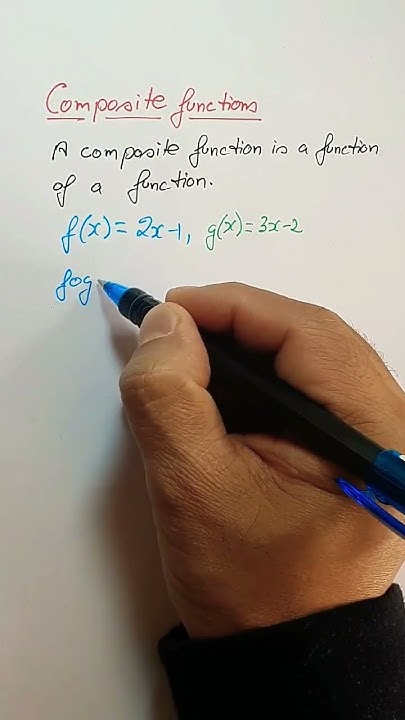 Composite functions
A composite function is a function
of a function.
f(x) = 2x-1, g(x) = 3x-2
fog